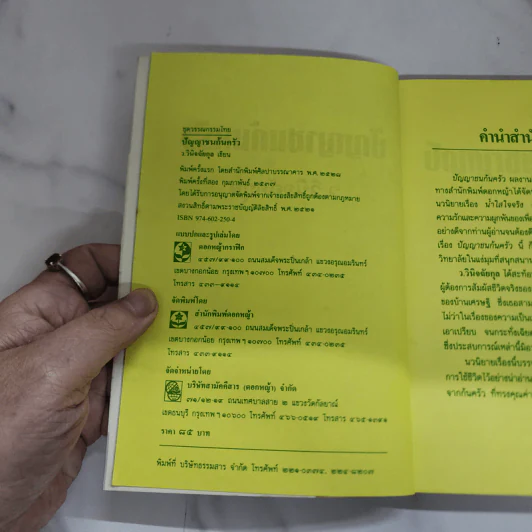 ชุดวรรณกรรมไทย
ปัญญาชนก้นครัว
ว.วินิจฉัยกุล เขียน
พิมพ์ครั้งแรก โดยสำนักพิมพ์ศิลปาบรรณาคาร พ.ศ. ๒๕๒๘
พิมพ์ครั้งที่สอง กุมภาพันธ์ ๒๕๓๗
โดยได้รับการอนุญาตจัดพิมพ์จากเจ้าของลิขสิทธิ์ถูกต้องตามกฎหมาย
สงวนลิขสิทธิ์ตามพระราชบัญญัติลิขสิทธิ์ พ.ศ. ๒๕๒๑
ISBN 974-602-250-4
แบบปกและรูปเล่มโดย
ดอกหญ้ากราฟิค
๔๕๗/๙๙-๑๐๐ ถนนสมเด็จพระปิ่นเกล้า แขวงอรุณอมรินทร์
เขตบางกอกน้อย กรุงเทพฯ ๑๐๗๐๐ โทรศัพท์ ๔๓๔-๐๒๓๕
โทรสาร ๔๓๓-๙๑๑๔
จัดพิมพ์โดย
สำนักพิมพ์ดอกหญ้า
๔๕๗/๙๙-๑๐๐ ถนนสมเด็จพระปิ่นเกล้า แขวงอรุณอมรินทร์
เขตบางกอกน้อย กรุงเทพฯ ๑๐๗๐๐ โทรศัพท์ ๔๓๔-๐๒๓๕
โทรสาร ๔๓๓-๙๑๑๔
จัดจำหน่ายโดย
บริษัทสามัคคีสาร (ดอกหญ้า) จำกัด
๓๑/๑๒-๑๙ ถนนเทศบาลสาย ๒ แขวงวัดกัลยาณ์
เขตธนบุรี กรุงเทพฯ ๑๐๖๐๐ โทรศัพท์ ๔๖๖-๐๕๑๙ โทรสาร ๔๖๕-๑๓๙๑
ราคา ๘๕ บาท
พิมพ์ที่ บริษัทธรรมสาร จำกัด โทรศัพท์ ๒๒๑-๐๓๗๔, ๒๒๔-๘๒๐๗
คำนำสำนั
ปัญญาชนก้นครัว ผลงาน
ทางสำนักพิมพ์ดอกหญ้าได้จัด
นวนิยายเรื่อง น้ำใสใจจริง
ความรักและความผูกพันของเพื่
อย่างดีจากท่านผู้อ่านจนต้องตี
เรื่อง ปัญญาชนก้นครัว นี้
วิทยาลัยในแง่มุมที่สนุกสนาน
ว.วินิจฉัยกุล ได้สะท้อ
ผู้ต้องการสัมผัสชีวิตจริงของ
ของบ้านเศรษฐี ซึ่งเธอสาม
ไม่ว่าในเรื่องของความเป็นแ
เอาเปรียบ จนกระทั่งเฉียด
ซึ่งประสบการณ์เหล่านี้มีอา
นวนิยายเรื่องนี้บรร
การใช้ชีวิตไว้อย่างน่าอ่าน
จากก้นครัว ที่ทรงคุณค่า